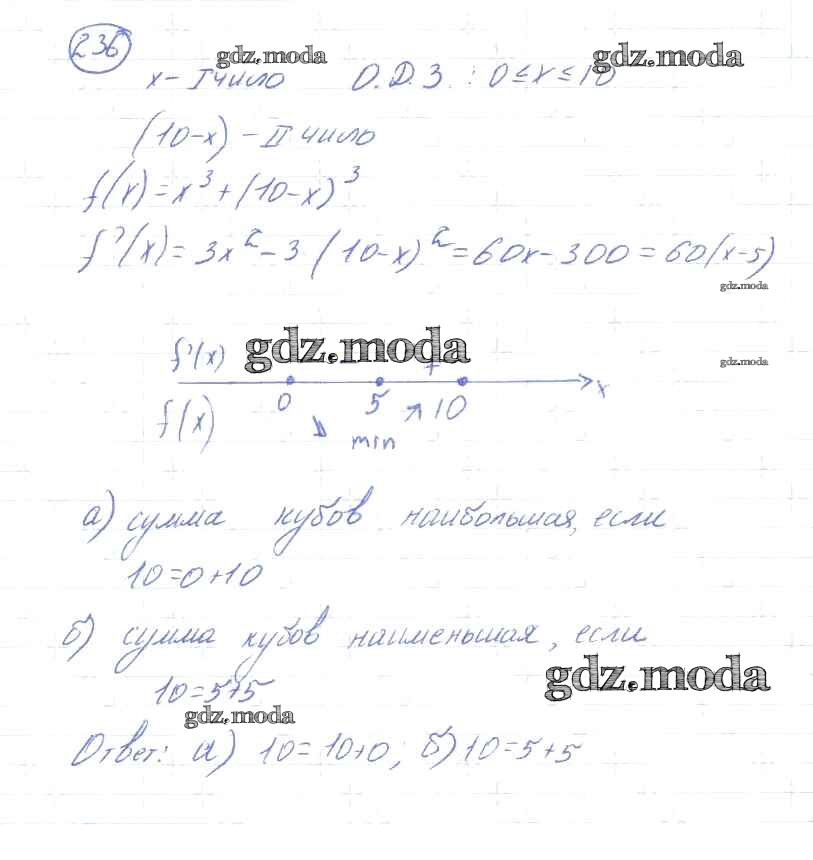 236
gdz.moda
gdz.moda
x - I число О.Д.З. : 0 ≤ x ≤ 10
(10-x) - II число
f(x) = x³ + (10-x)³
f'(x) = 3x² - 3(10-x)² = 60x - 300 = 60(x-5)
gdz.moda
f'(x) gdz.moda +
gdz.moda
0 5 10 x
f(x) ↘ min ↗
а) сумма кубов наибольшая, если
10 = 0 + 10
б) сумма кубов наименьшая, если
10 = 5 + 5
gdz.moda
gdz.moda
Ответ: а) 10 = 10 + 0; б) 10 = 5 + 5